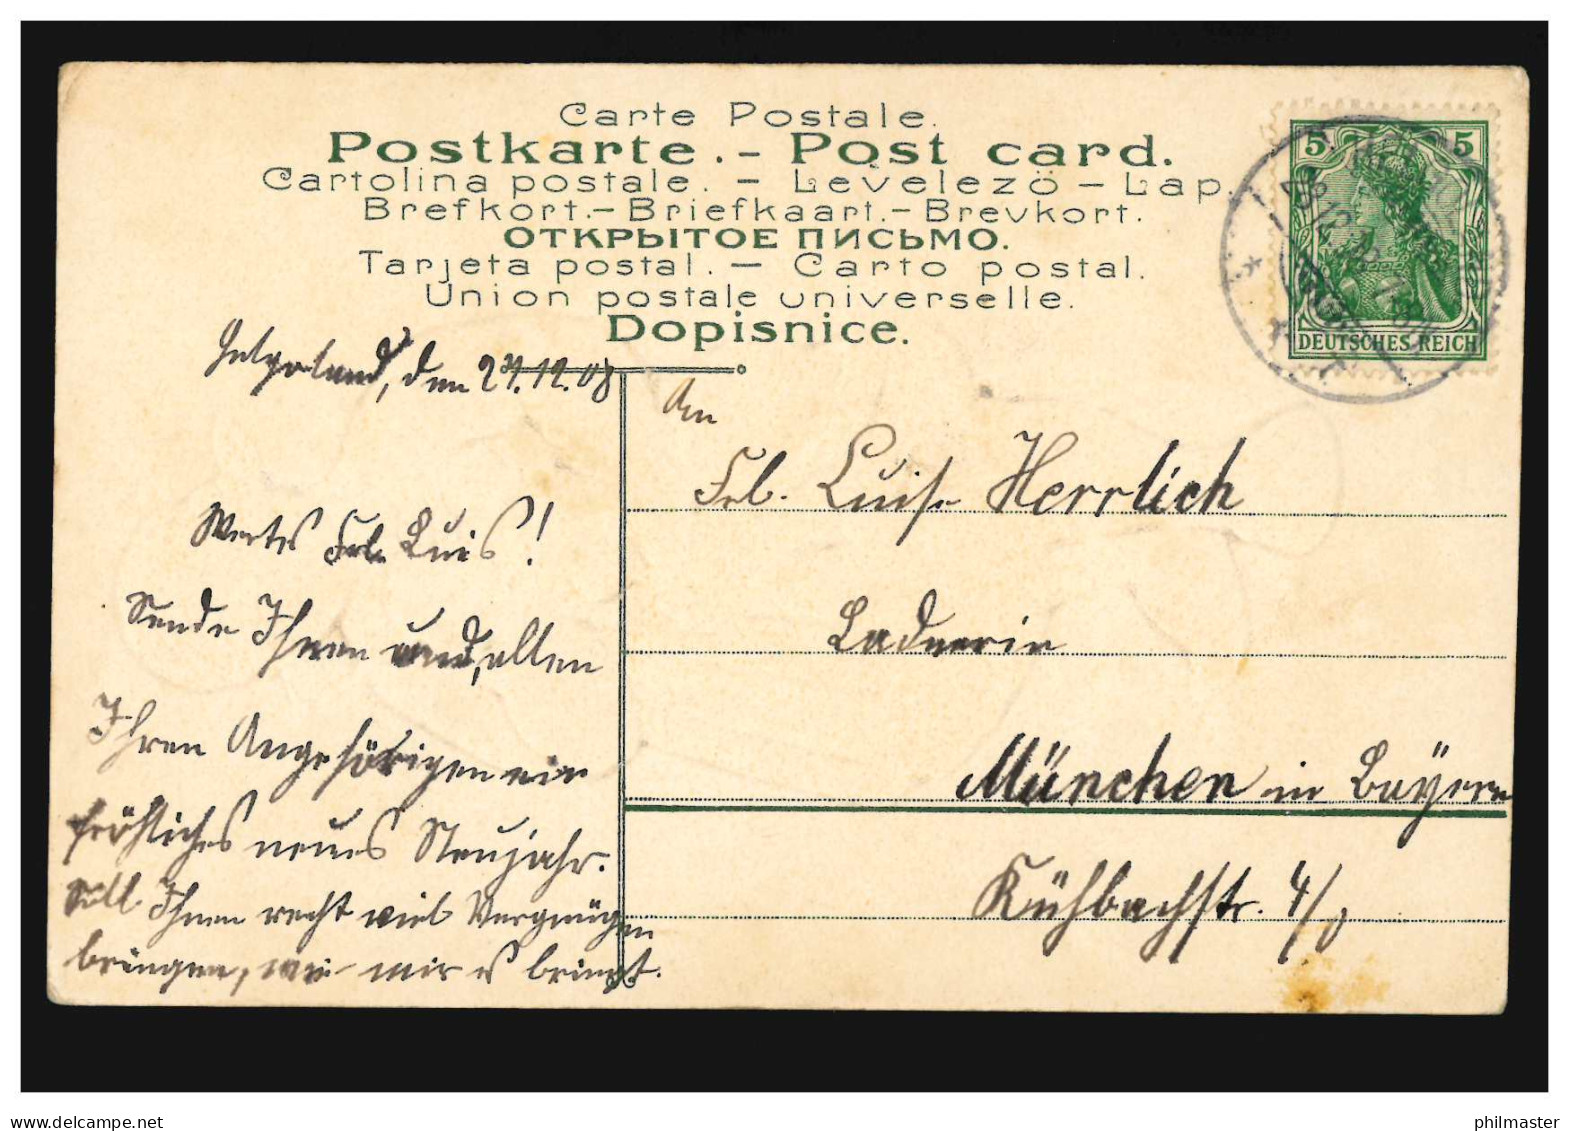 Carte Postale.
Postkarte. - Post card.
Cartolina postale. - Levelezö - Lap.
Brefkort. - Briefkaart. - Brevkort.
ОТКРЫТОЕ ПИСЬМО.
Tarjeta postal. - Carto postal.
Union postale universelle.
Dopisnice.
5 5
DEUTSCHES REICH
Helgoland, den 29.12.08
An
Frl. Luise Herrlich
Ladnerin
München in Bayern
Kühbachstr. 4/0
Wertes Frl. Luis!
Sende Ihnen und allen
Ihren Angehörigen ein
fröhliches neues Neujahr.
Soll Ihnen recht viel Vergnügen
bringen, wie mir es bringt.
delcampe.net
philmaster